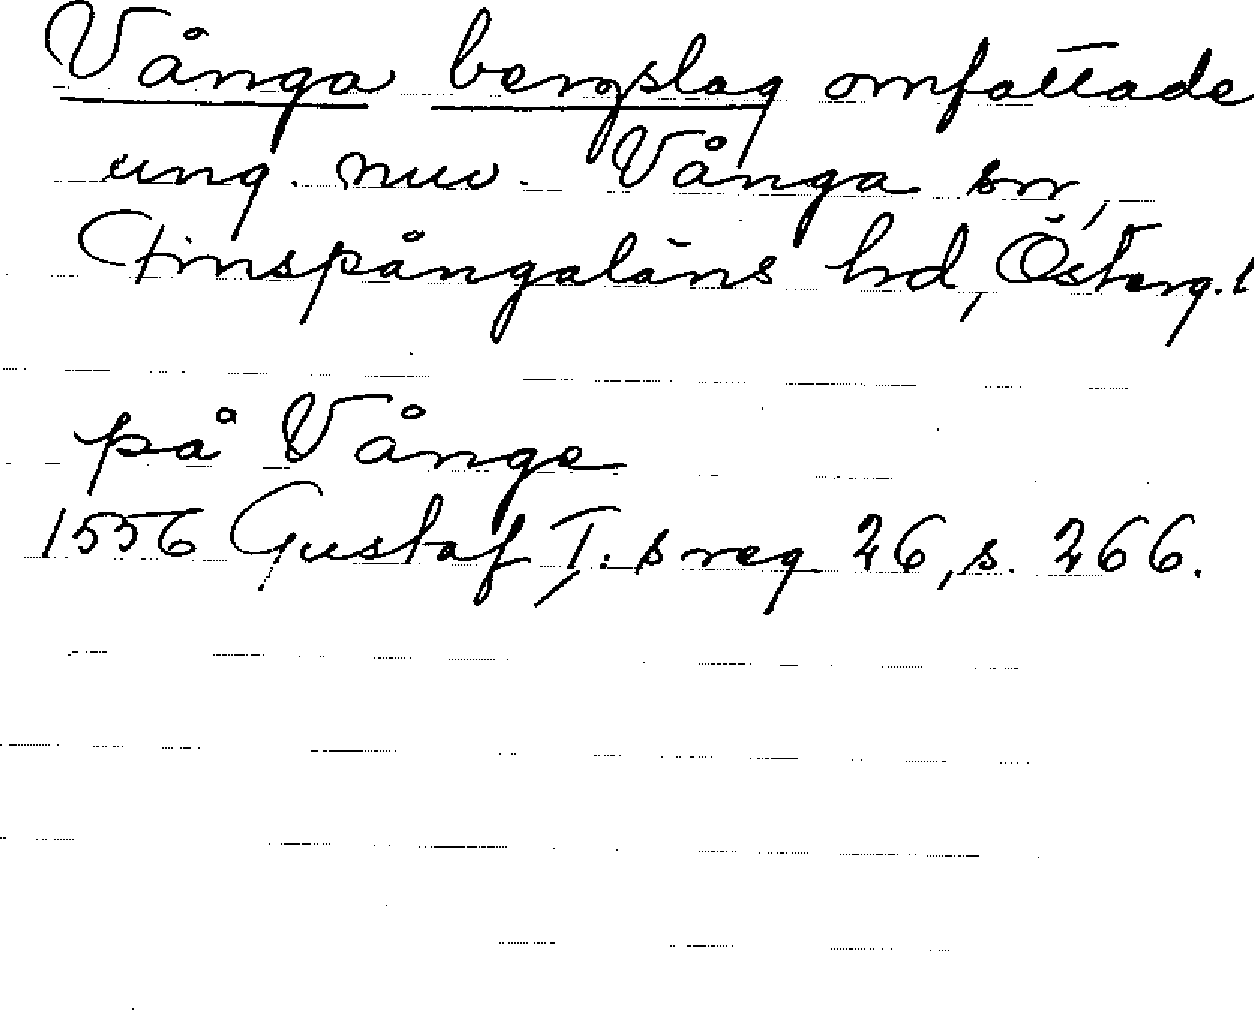 Vånga bergslag omfattade
ung. nuv. Vånga sn,
Finspångaläns hd, Österg. l
på Vånge
1556 Gustaf I:s reg 26, s. 266.